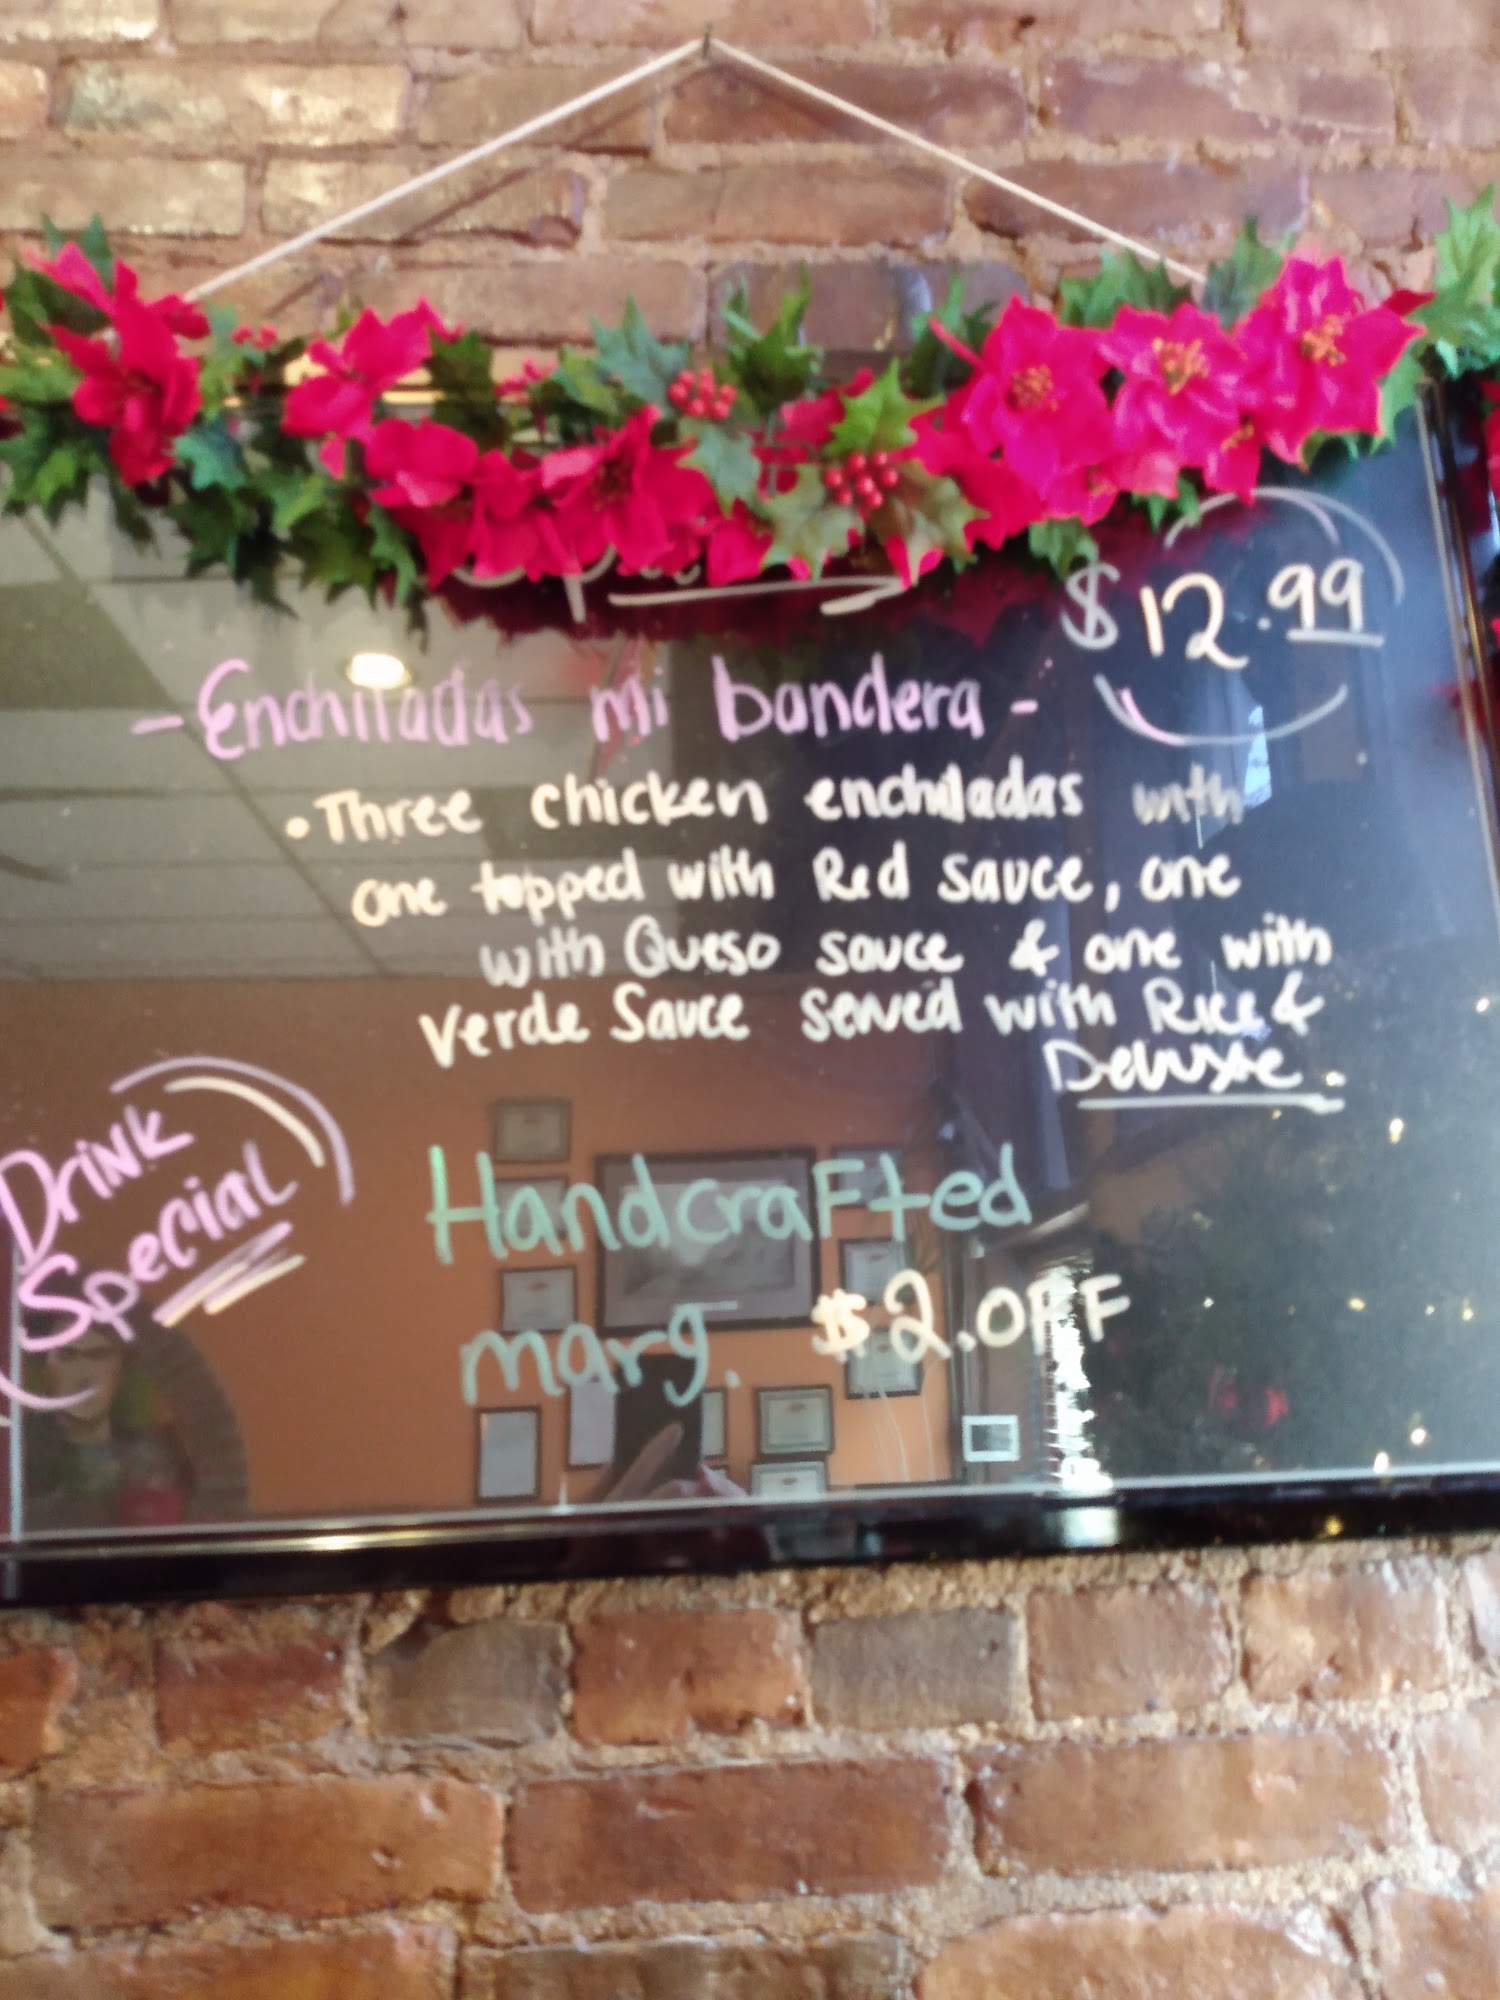 $12.99
- Enchiladas mi bandera -
• Three chicken enchiladas with
one topped with Red sauce, one
with Queso sauce & one with
Verde Sauce served with Rice &
Deluxe.
Drink
Special
Handcrafted
marg. $2.OFF